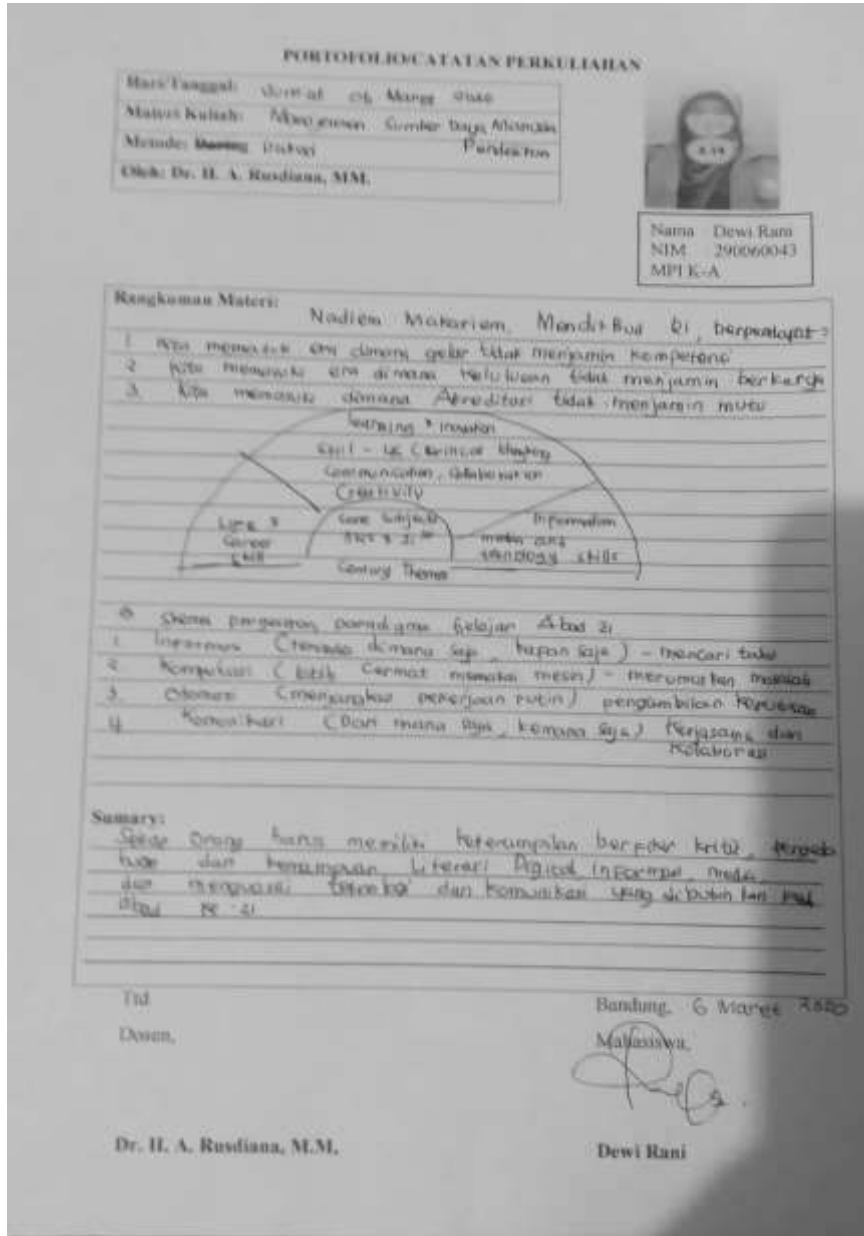 PORTOFOLIO/CATATAN PERKULIAHAN
Hari/Tanggal: Jum'at 06 Maret 2020
Mata Kuliah: Manajemen Sumber Daya Manusia
Pendidikan
Metode: Diskusi
Oleh: Dr. H. A. Rusdiana, MM.
Nama Dewi Rani
NIM 290060043
MPI K-A
Rangkuman Materi:
Nadiem Makariem, Mendikbud RI, berpendapat :
1 Kita memasuki era dimana gelar tidak menjamin kompetensi
2 Kita memasuki era dimana kelulusan tidak menjamin berkerja
3. Kita memasuki dimana Akreditasi tidak menjamin mutu
learning & inovation
Communication, Collaboration
Creativity
Life &
Career
Skill
Core Subjects
Information
media and
skills
Century Themes
Skema pergeseran paradigma belajar Abad 21
1 Informasi (tersedia dimana saja, kapan saja) - mencari tahu
2 Komputasi (lebih cermat memakai mesin) - merumuskan masalah
3. Otomasi (menjangkau pekerjaan rutin) pengambilan keputusan
4 Komunikasi (Dari mana saja, kemana saja) Kerjasama dan
Kolaborasi
Sumary:
orang harus memiliki keterampilan berpikir kritis,
dan kemampuan Literasi Digital, Informasi, media
dan menguasai dan komunikasi yang dibutuhkan
abad ke-21
Ttd
Bandung, 6 Maret 2020
Dosen,
Mahasiswa,
Dr. H. A. Rusdiana, M.M.
Dewi Rani